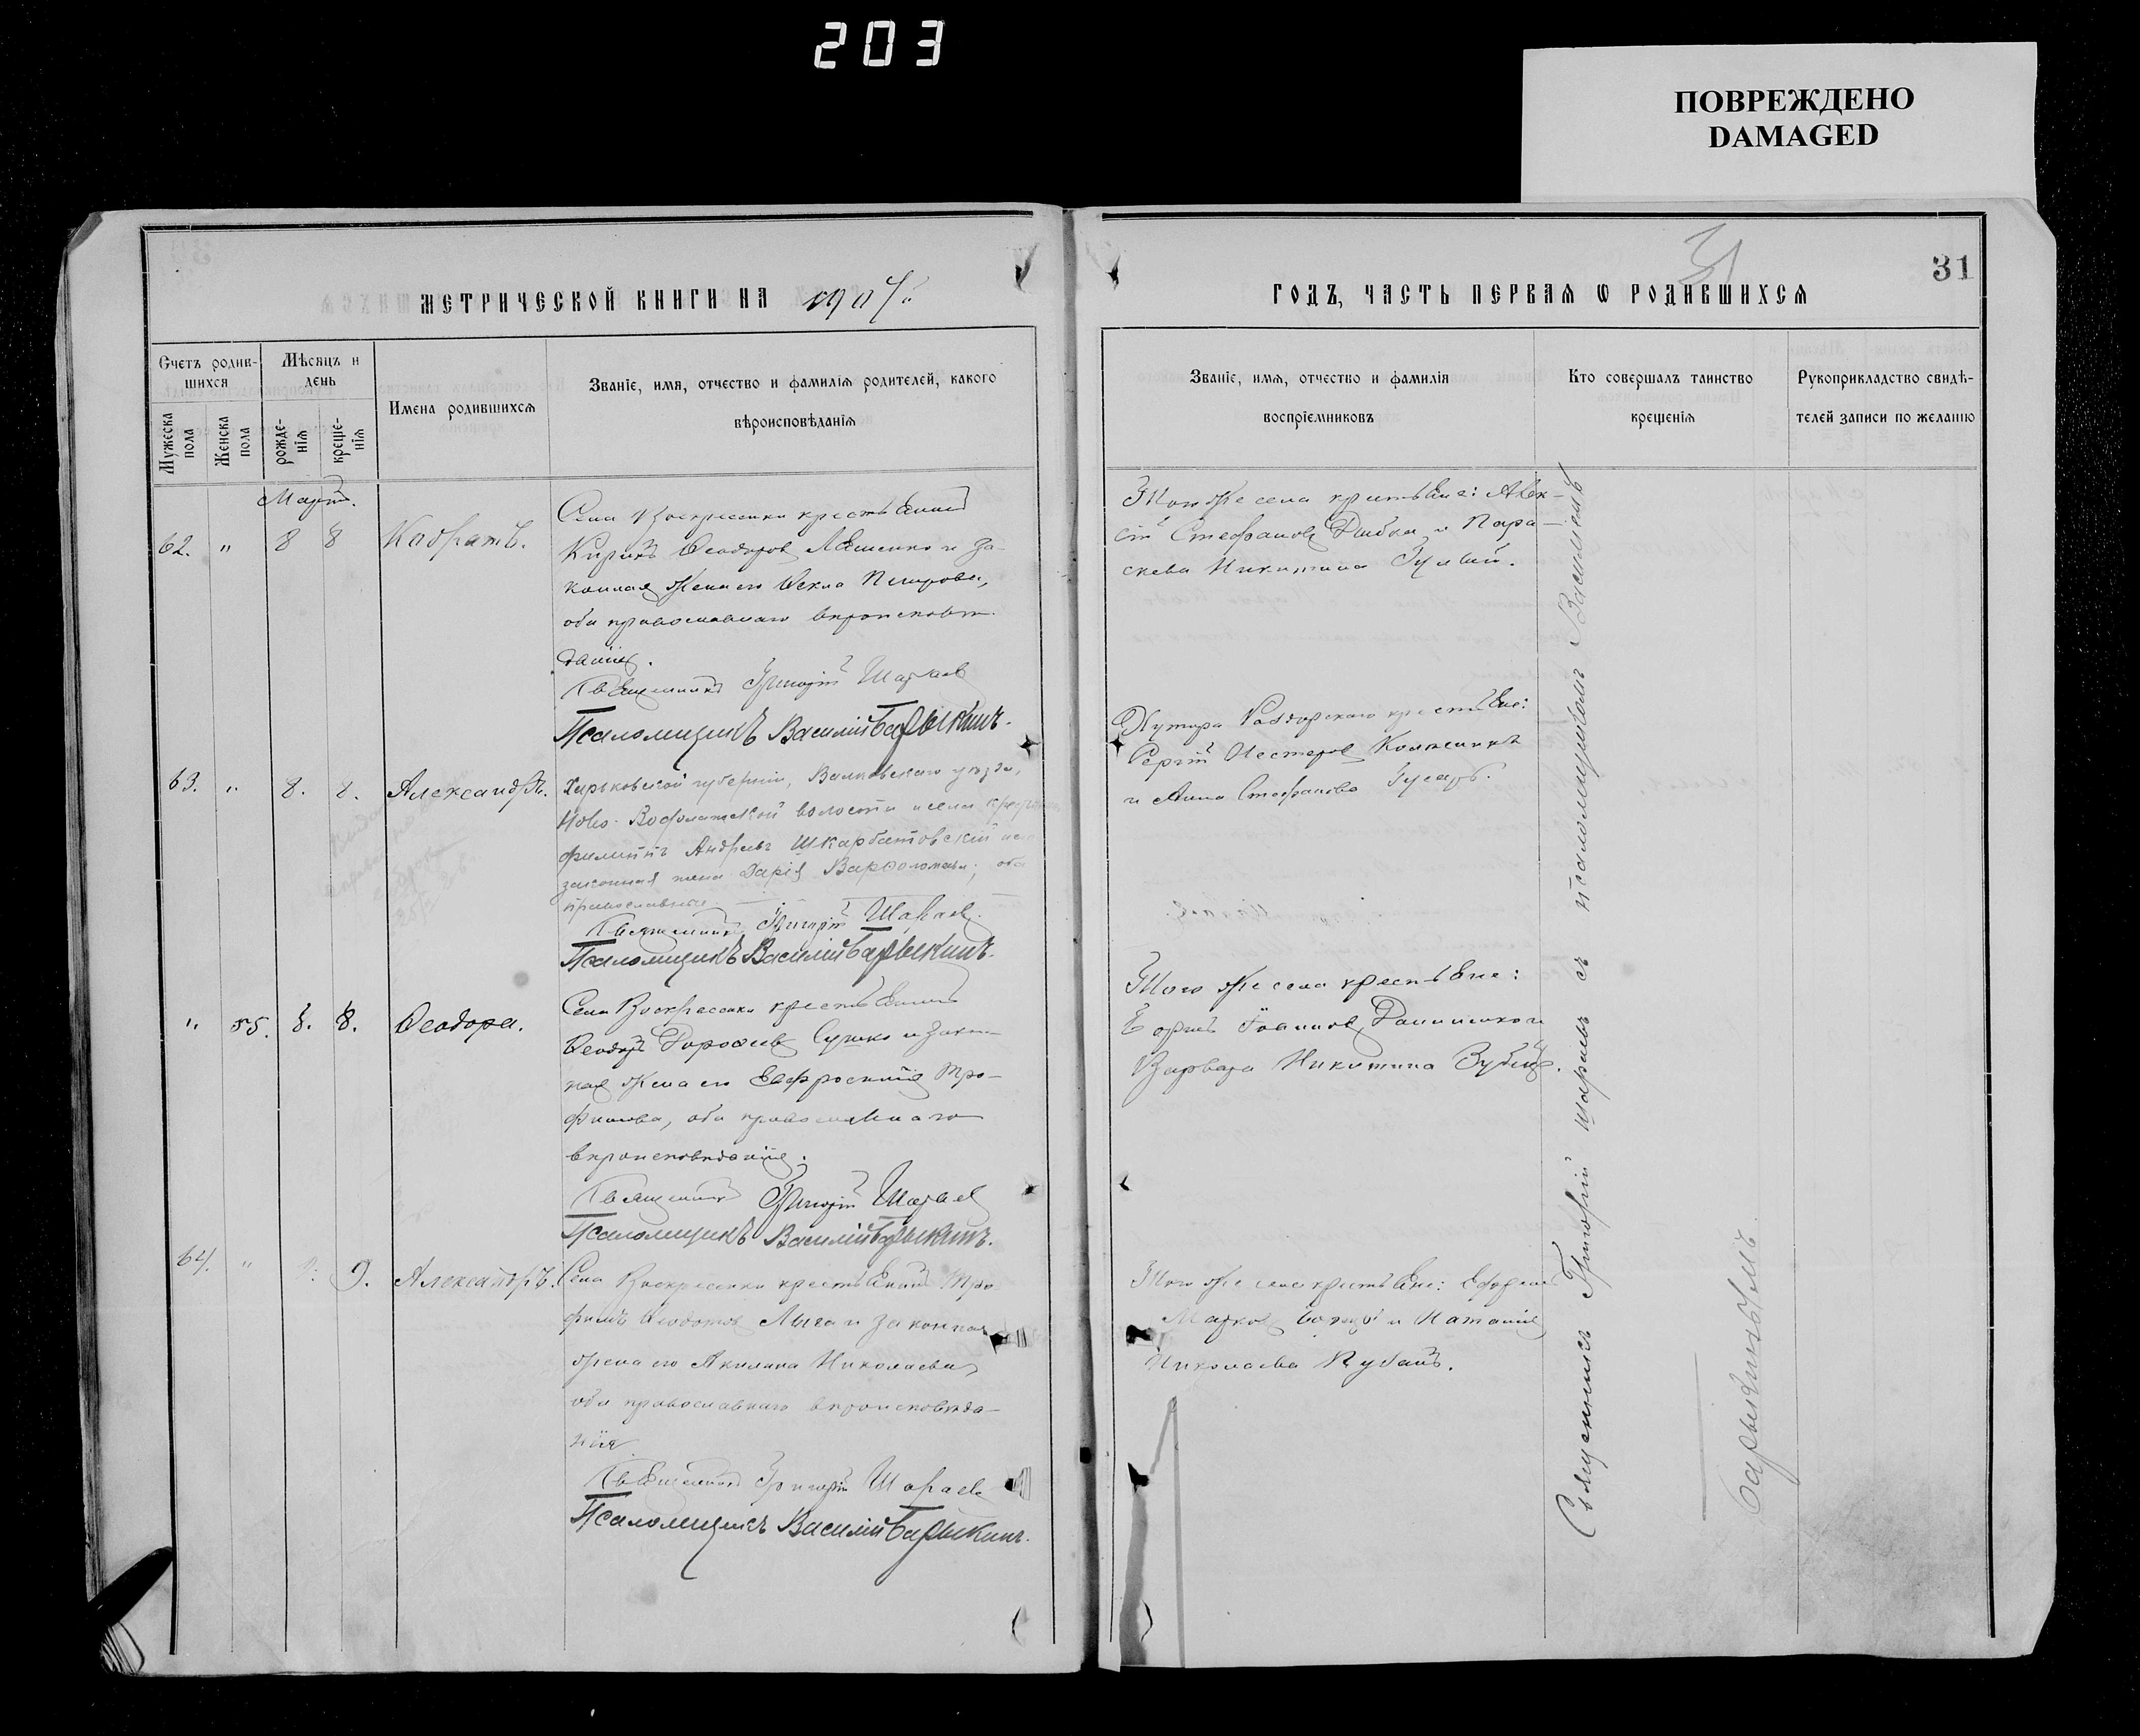 203
ПОВРЕЖДЕНО
DAMAGED
31
МЕТРИЧЕСКОЙ КНИГИ НА
ГОДЪ, ЧАСТЬ ПЕРВАЯ Ѡ РОДИВШИХСЯ
Счетъ родив-
шихся
Мужеска
пола
Женска
пола
Мѣсяцъ и
день
рожде-
нія
креще-
нія
Имена родившихся
Званіе, имя, отчество и фамилія родителей, какого
вѣроисповѣданія
Званіе, имя, отчество и фамилія
воспріемниковъ
Кто совершалъ таинство
крещенія
Рукоприкладство свидѣ-
телей записи по желанію
Мартъ.
62. " 8 8 Кодратъ.
Села Воскресенки крестьянинъ
Ѳеодоровъ и за-
конная жена его Ѳекла Петрова,
оба православнаго вѣроисповѣ-
данія.
Священникъ Григорій Шараевъ
Псаломщикъ Василій Барыкинъ.
Того же села крестьяне: Алек-
сій Стефановъ и Пара-
скева Никитина
63. " 8. 8. Александръ.
Харьковской губерніи, Валковскаго уѣзда,
Ново-Водолажской волости и села
Филиппъ Андреевъ Шкарбатовскій и
законная жена Дарія Варѳоломеева; оба
православные.
Священникъ Григорій Шараевъ.
Псаломщикъ Василій Барыкинъ.
Хутора крестьяне:
Сергій Нестеровъ
и Анна Стефанова Гусаръ.
" 55. 8. 8. Ѳеодора.
Села Воскресенки крестьянинъ
Ѳеодоръ Дороѳеевъ Сушко и закон-
ная жена его Евфросинія Тро-
фимова, оба православнаго
вѣроисповѣданія.
Священникъ Григорій Шараевъ
Псаломщикъ Василій Барыкинъ.
Того же села крестьяне:
Іоанновъ и
Варвара Никитина
64. " 9. Александръ.
Села Воскресенки крестьянинъ Тро-
фимъ Ѳеодотовъ Лыга и законная
жена его Акилина Николаева,
оба православнаго вѣроисповѣда-
нія.
Священникъ Григорій Шараевъ
Псаломщикъ Василій Барыкинъ.
Того же села крестьяне: Ефремъ
Марковъ и Наталія
Николаева
Священникъ Григорій Шараевъ съ псаломщикомъ Василіемъ
Барыкинымъ.